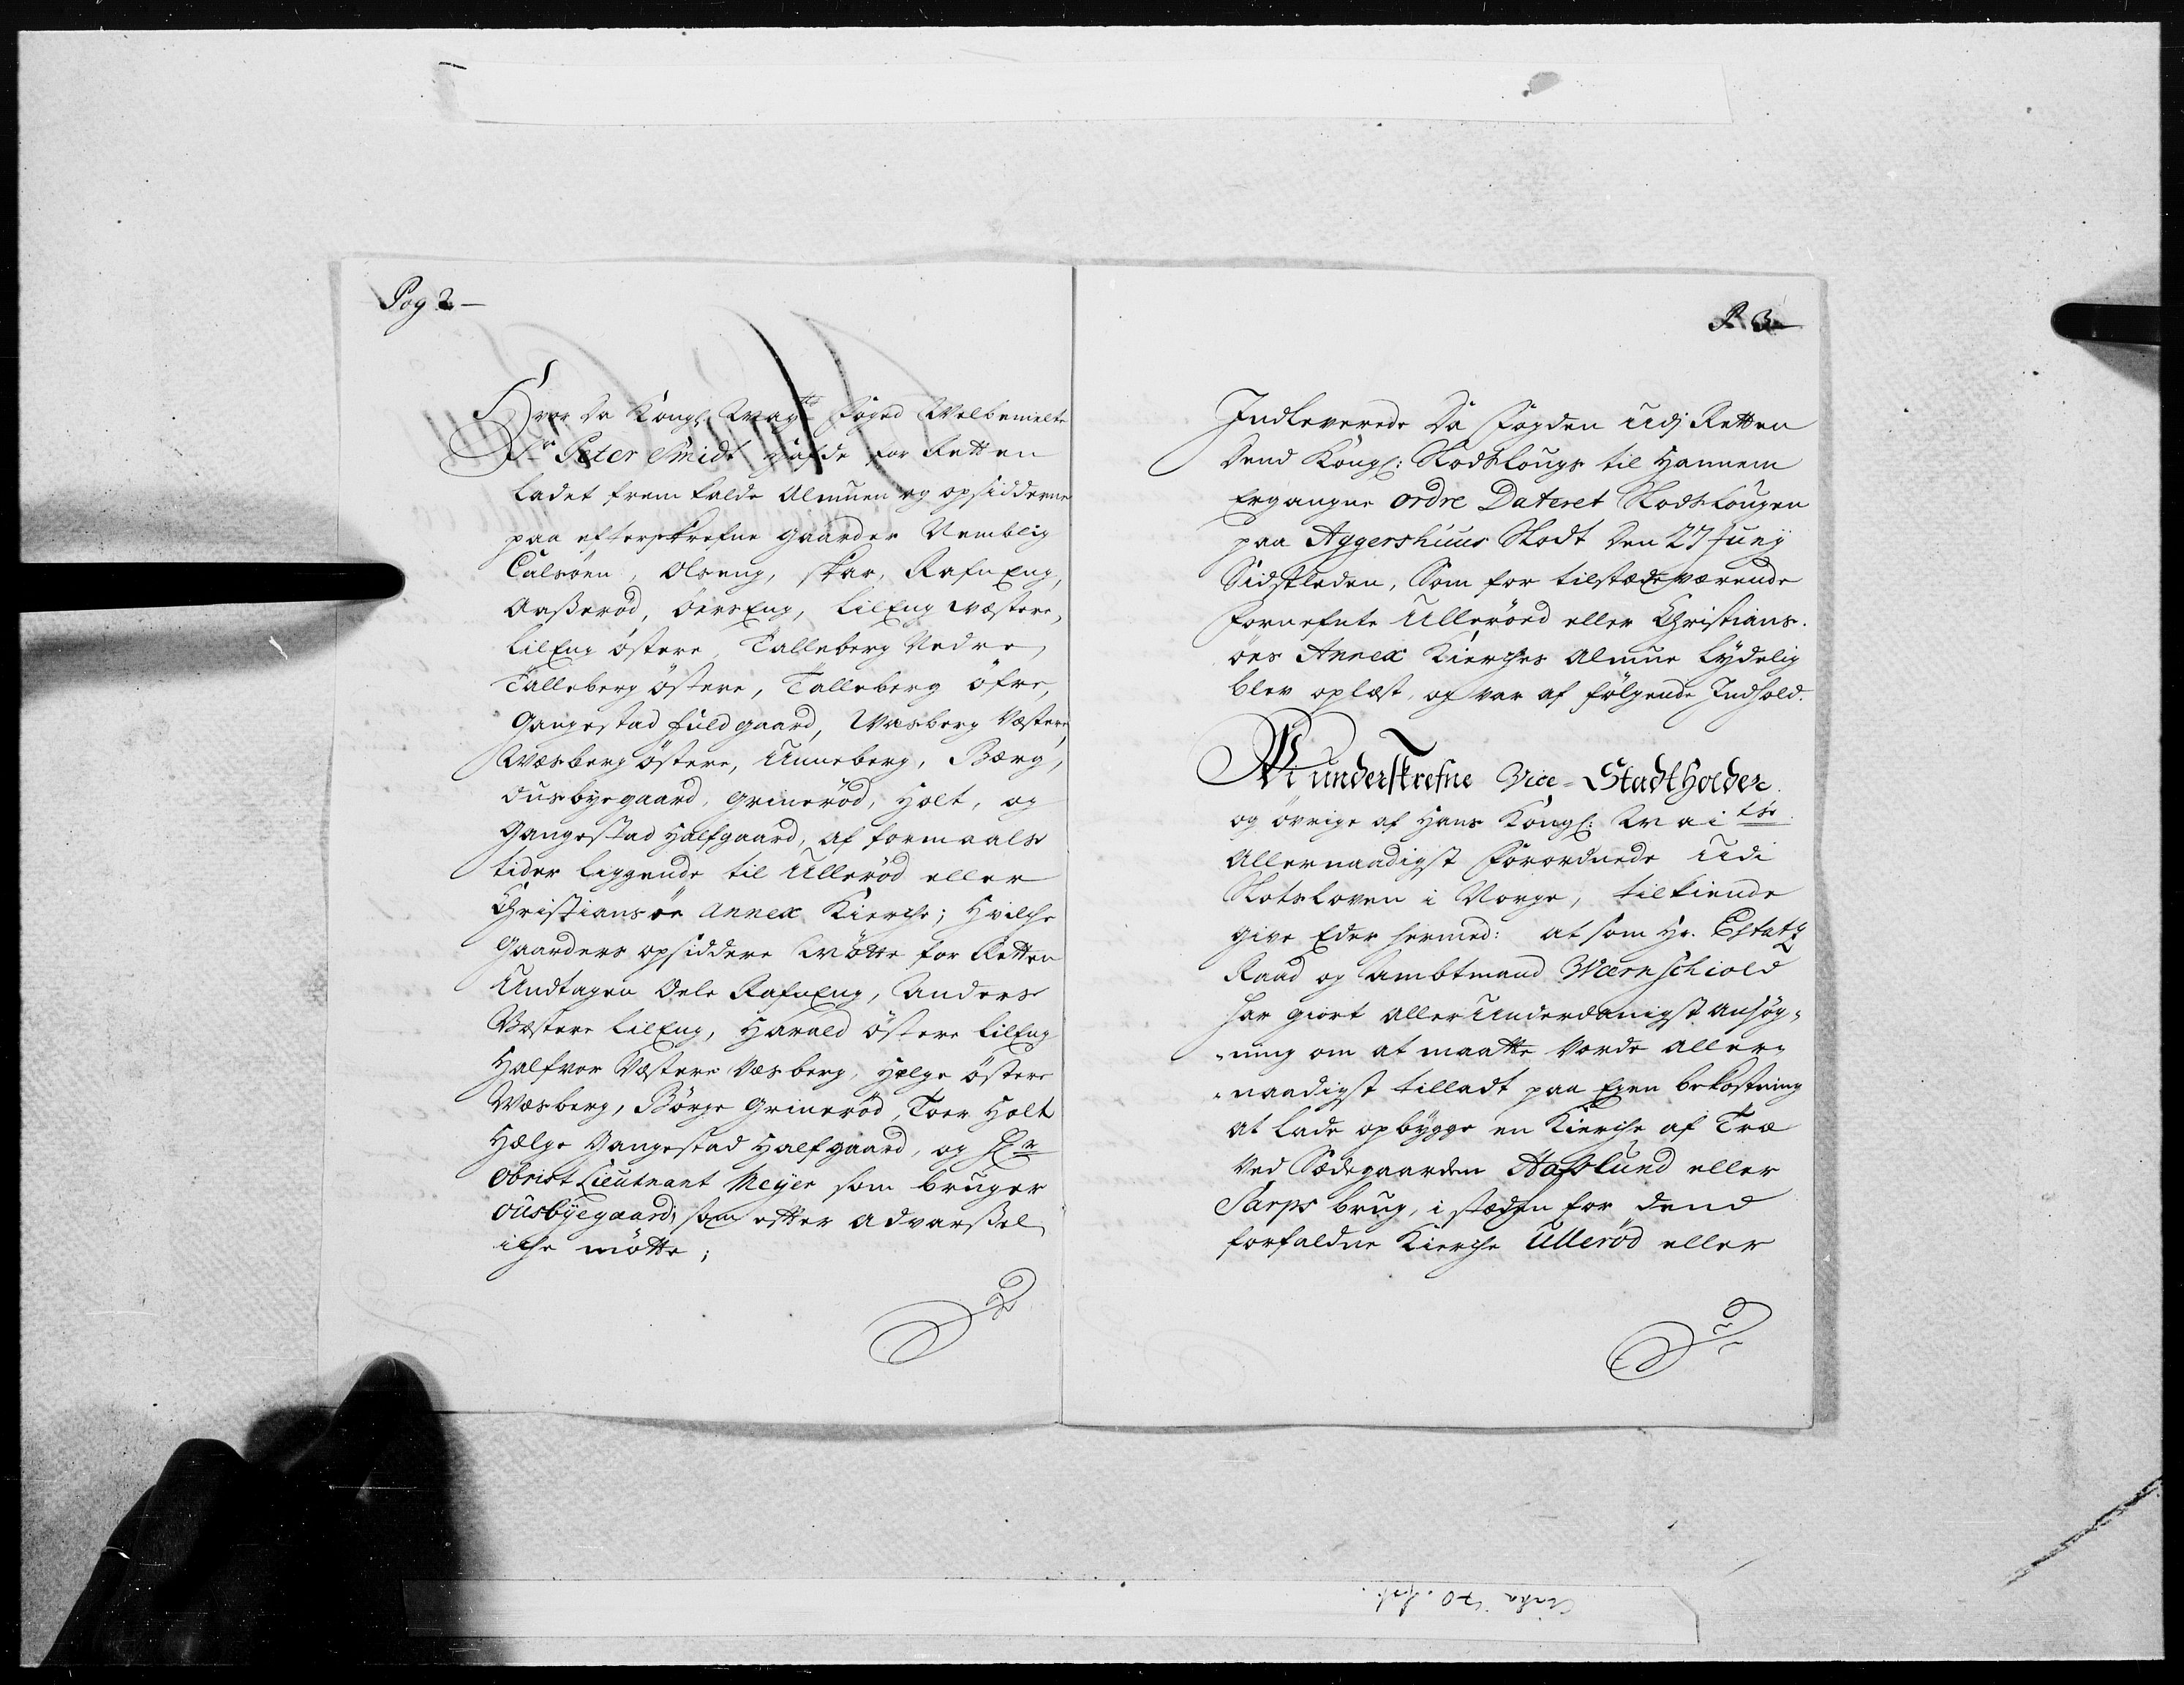 Pag 2
Hvor da Kongl. Mayts Foged Welbemelte
Sr Peter Smidt hafde for Retten
ladet frem kalde Almuen og opsidderne
paa efterskrefne gaarder Nemblig
Calsöen, Olseng, Skar, RafnEng,
Aaßerød, BersEng, LilEng Wæstere,
LilEng østere, Talleberg Nedre,
Talleberg østere, Talleberg öfre,
Gangestad fuldgaard, Wæsberg Væstere,
Wæsberg østere, Unneberg, Berg,
Ousbyegaard, Grinerød, Holt, og
Gangestad Halfgaard, af formaals
tider liggende til Ullerød eller
Christiansöe Annex Kierche; Hvilche
Gaarders opsiddere Mötte for Retten
Undtagen Oele RafnEng, Anders
Væstere LilEng, Harald östere LilEng
Halfvor Væstere Væsberg, Helge östere
Wæsberg, Børge Grinerød, Toer Holt
Helge Gangestad Halfgaard, og Hr
Obrist Lieutnant Meyer som bruger
Ousbyegaard, som efter advarßel
iche mötte;
P 3
Indleverede Da Fogden Udj Retten
Dend Kongl: Slodtslougs til Hannem
Ergangne ordre Dateret Slodtslougen
paa Aggershuus Slodt Den 27 Junij
Sidstleden, Som for tilstædeværende
Fornefnte Ulleröed eller Christians-
öes Annex Kierches Almue lydelig
blev oplæst, og var af fölgende Indhold.
Wi underskrefne Vice-Stadtholder
og övrige af Hans Kongl: Maits
Allernaadigst Forordnede Udi
Slotsloven i Norge, tilkiende
give Eder hermed: at som Hr. Estatz
Raad og Ambtmand Wærnschiold
har giort allerUnderdanigst Ansøg-
-ning om at maatte Vorde aller-
-naadigst tilladt paa Egen bekostning
at lade opbygge en Kierche af Træ
Ved Sædegaarden Hafslund eller
Sarps brug, i stæden for dend
forfaldne Kierche Ullerød eller
Cirka 70 fol.